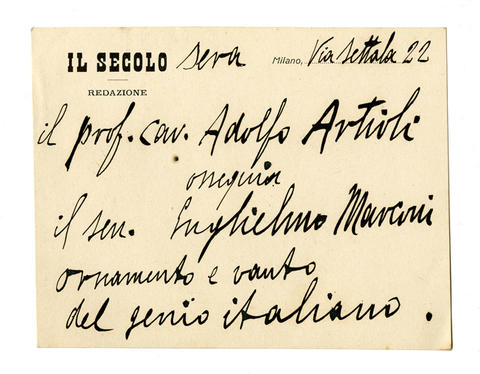 IL SECOLO sera Milano, Via Settala 22
REDAZIONE
il prof. cav. Adolfo Artioli
ossequia
il sen. Guglielmo Marconi
ornamento e vanto
del genio italiano.